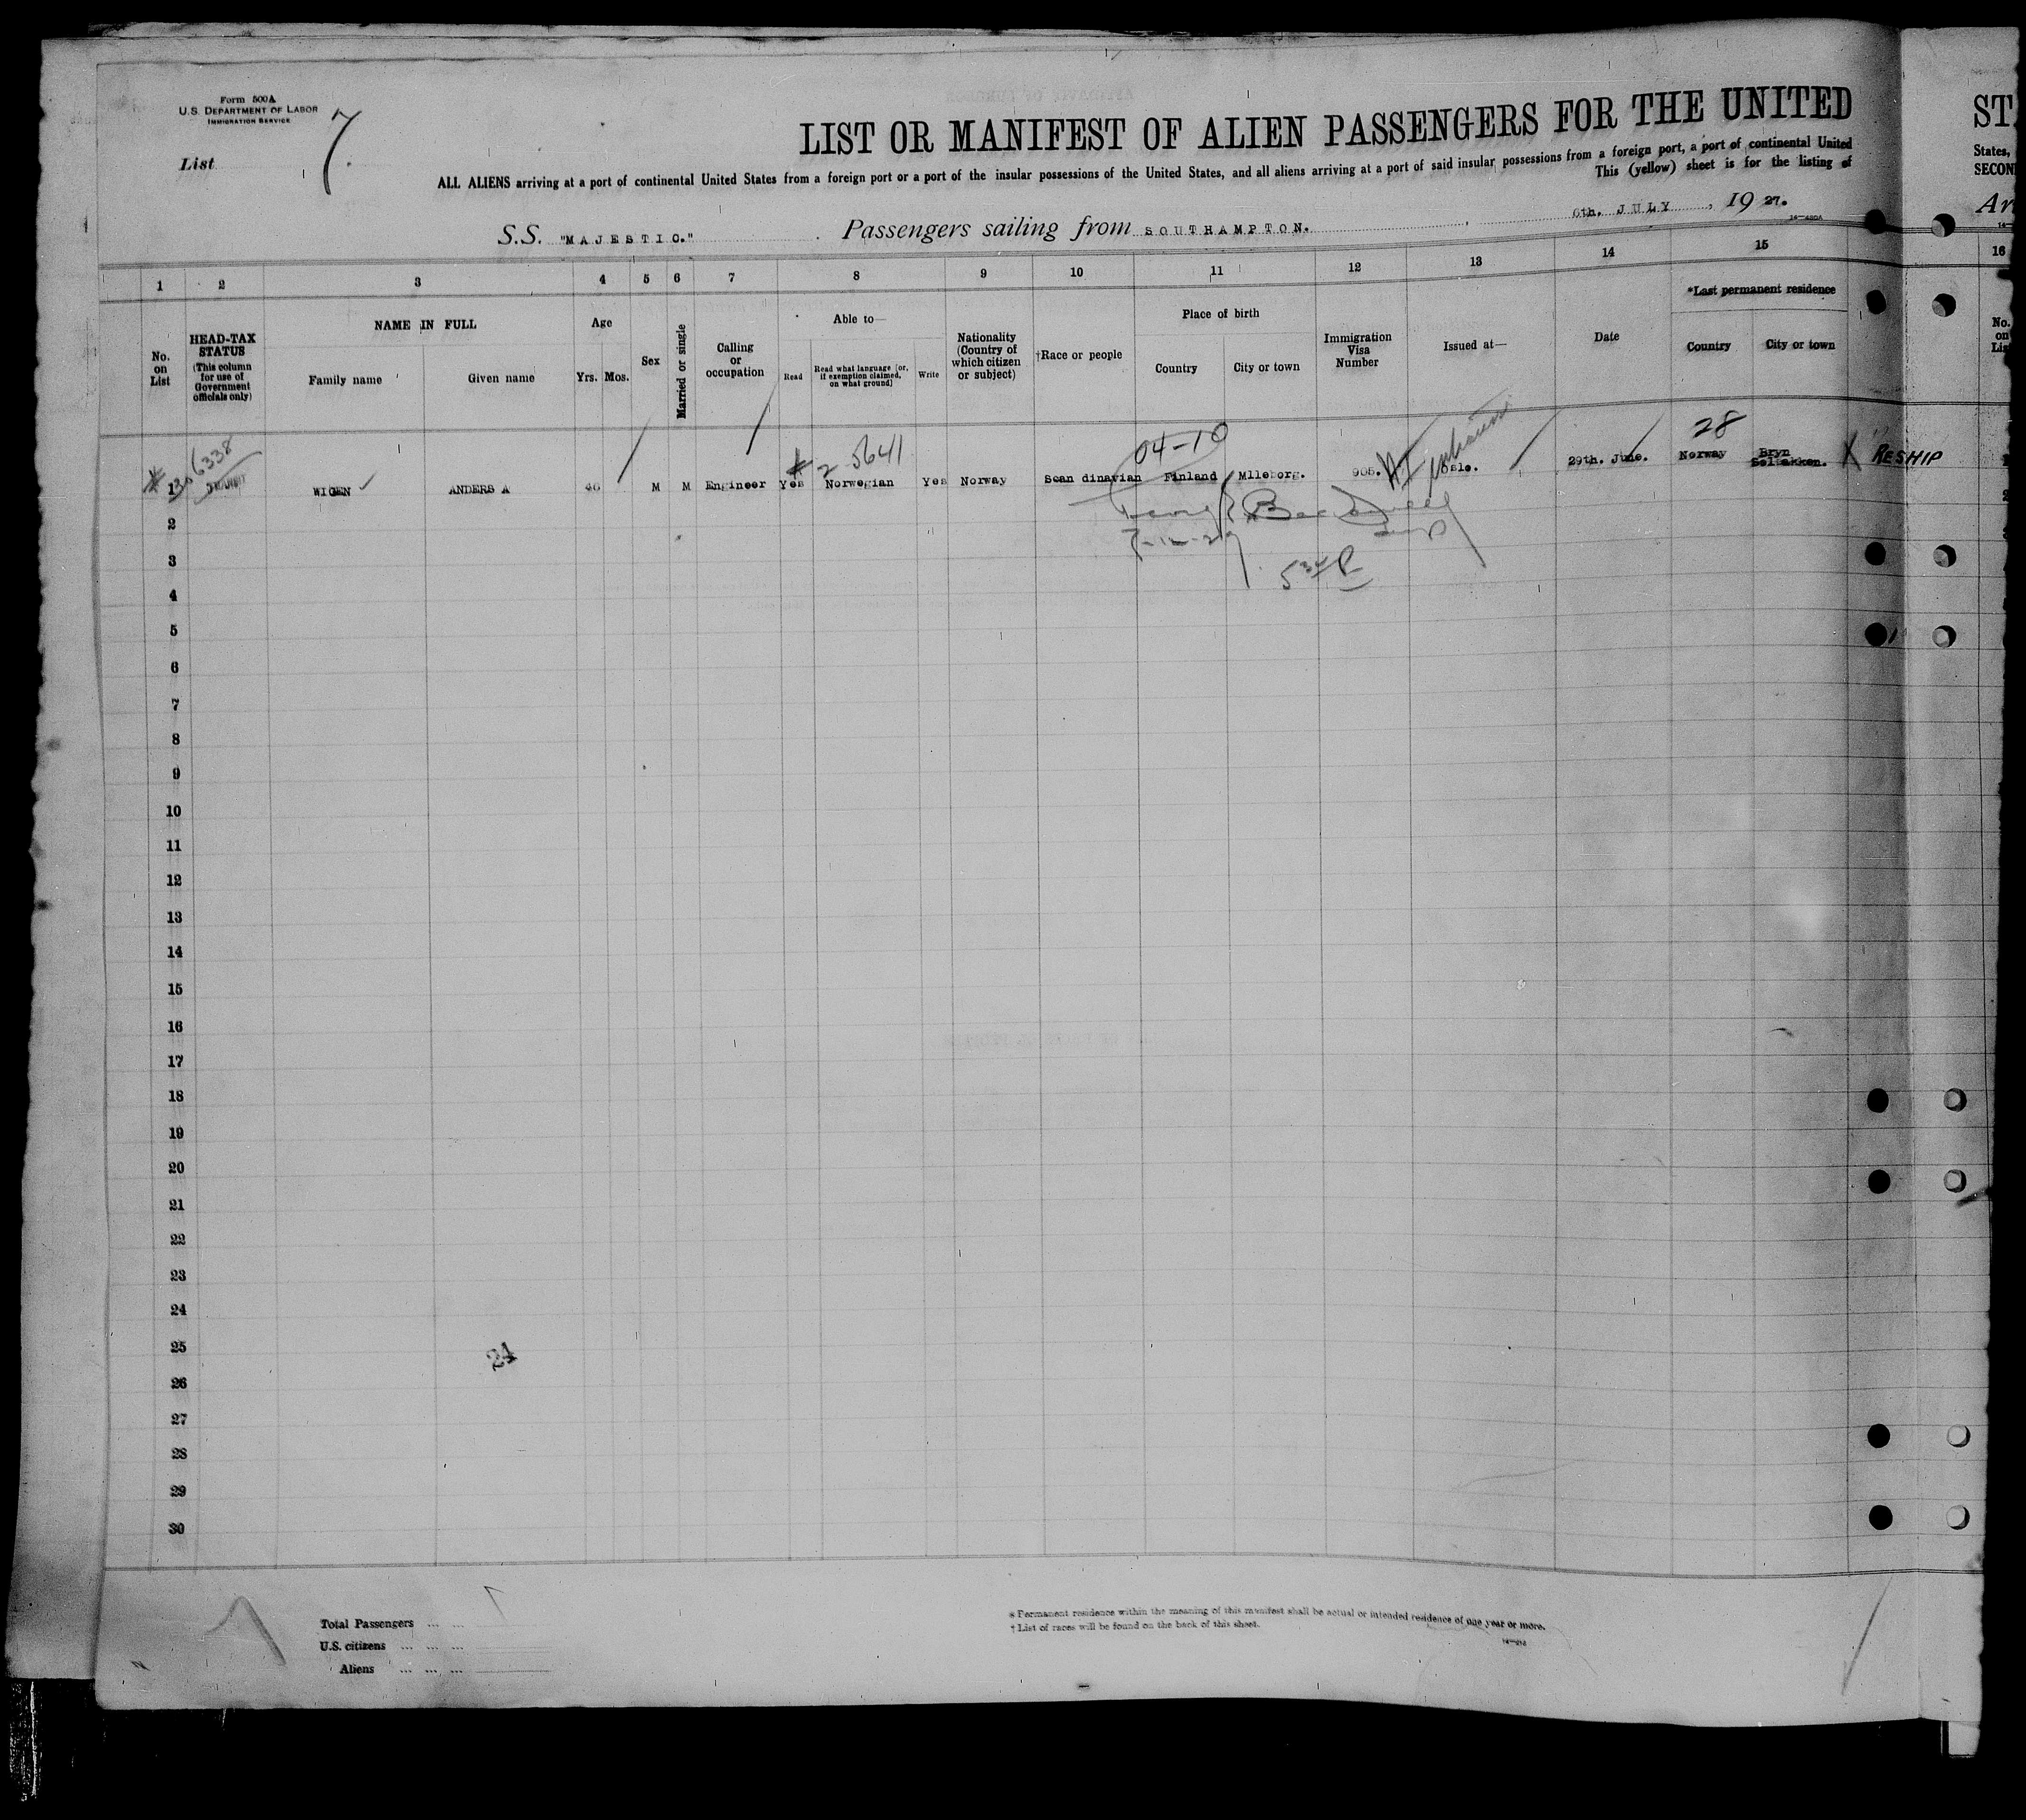 Form 500A
U.S. DEPARTMENT OF LABOR
IMMIGRATION SERVICE
List 7.
LIST OR MANIFEST OF ALIEN PASSENGERS FOR THE UNITED
ALL ALIENS arriving at a port of continental United States from a foreign port or a port of the insular possessions of the United States, and all aliens arriving at a port of said insular possessions from a foreign port, a port of continental United
This (yellow) sheet is for the listing of
S.S. "MAJESTIC." Passengers sailing from SOUTHAMPTON. 6th. JULY, 1927.
ST
States,
SECON
Ar
1 2 3 4 5 6 7 8 9 10 11 12 13 14 15 16
No. on List
HEAD-TAX STATUS (This column for use of Government officials only)
NAME IN FULL
Family name Given name
Age
Yrs. Mos.
Sex
Married or single
Calling or occupation
Able to—
Read
Read what language [or, if exemption claimed, on what ground]
Write
Nationality (Country of which citizen or subject)
†Race or people
Place of birth
Country City or town
Immigration Visa Number
Issued at—
Date
*Last permanent residence
Country City or town
No. on Lis
6338
2 5641
04-10
28
1 WIGEN ANDERS A 46 M M Engineer Yes Norwegian Yes Norway Scan dinavian Finland Mlleborg. 905. Oslo. 29th. June. Norway Bryn X RESHIP
2
3
5 30 P
4
5
6
7
8
9
10
11
12
13
14
15
16
17
18
19
20
21
22
23
24
25
24
26
27
28
29
30
Total Passengers ... ...
U.S. citizens ... ... ...
Aliens ... ... ...
* Permanent residence within the meaning of this manifest shall be actual or intended residence of one year or more.
† List of races will be found on the back of this sheet.